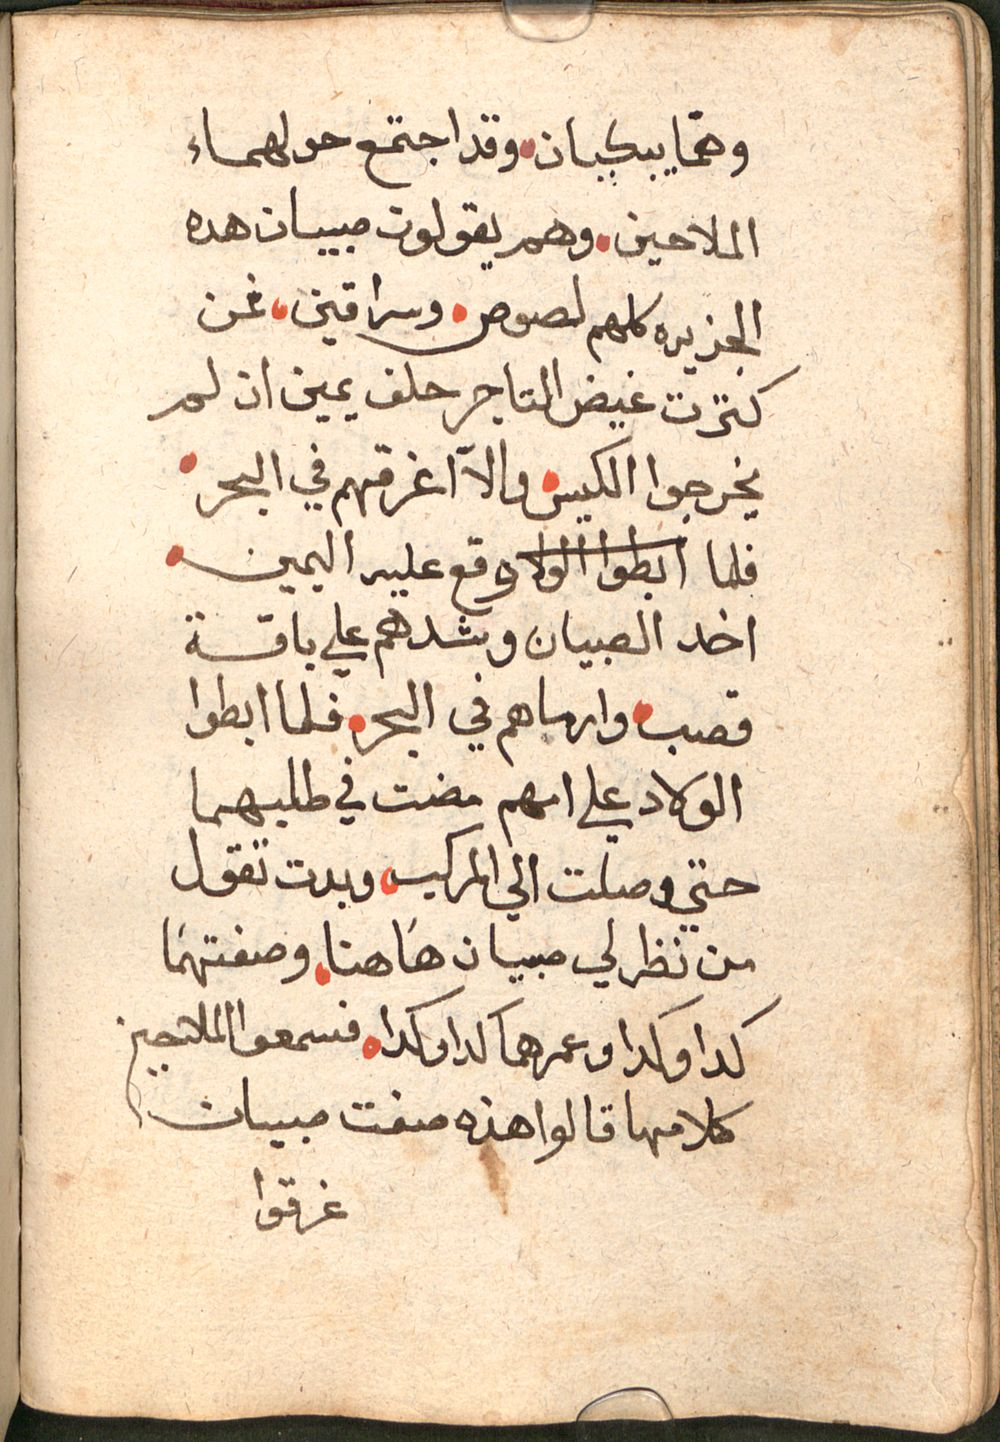 وهما يبكيان • وقد اجتمع حولهما
الملاحين • وهم يقولون صبيان هده
الجزيره كلهم لصوص • وسراقين • فمن
كترت غيض التاجر حلف يمين ان لم
يخرجوا الكيس • والا اغرقهم في البحر •
فلما ابطوا الولاد وقع عليه اليمين •
اخد الصبيان وشدهم علي باقة
قصب • وارماهم في البحر • فلما ابطوا
الولاد علي امهم مضت في طلبهما
حتي وصلت الي المركب • وبدت تقول
من نظر لي صبيان هاهنا • وصفتهما
كدا وكدا وعمرهما كدا وكدا • فسمعوا الملاحين
كلامها قالوا هذه صفت صبيان
غرقوا